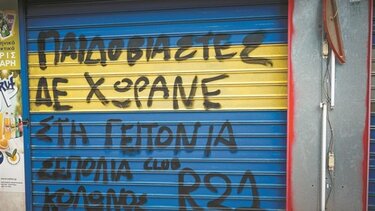 ΠΑΙΔΟΒΙΑΣΤΕΣ
ΔΕ ΧΩΡΑΝΕ
ΣΤΗ ΓΕΙΤΟΝΙΑ
ΣΕΠΟΛΙΑ CLUB
ΚΟΛΩΝΟΣ R21